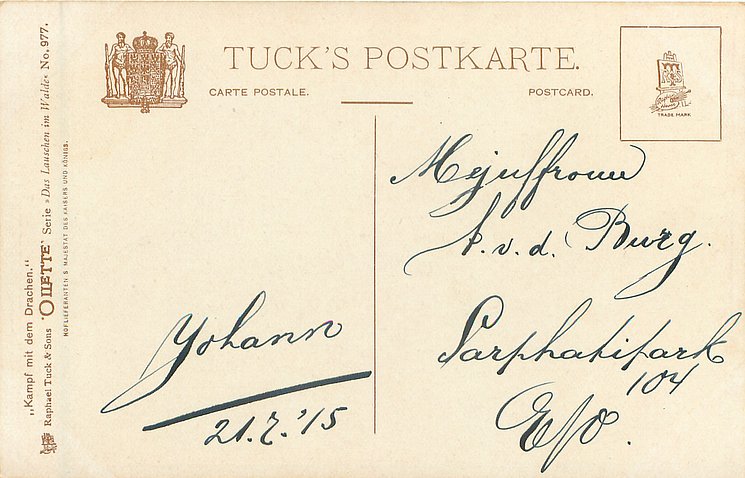 TUCK'S POSTKARTE.
CARTE POSTALE.
POSTCARD.
TRADE MARK
„Kampf mit dem Drachen."
Raphael Tuck & Sons "OILETTE" Serie »Das Lauschen im Walde« No. 977.
HOFLIEFERANTEN S. MAJESTÄT DES KAISERS UND KÖNIGS.
Johann
21.7.'15
Mejuffrouw
A. v. d. Burg.
Sarphatipark
104